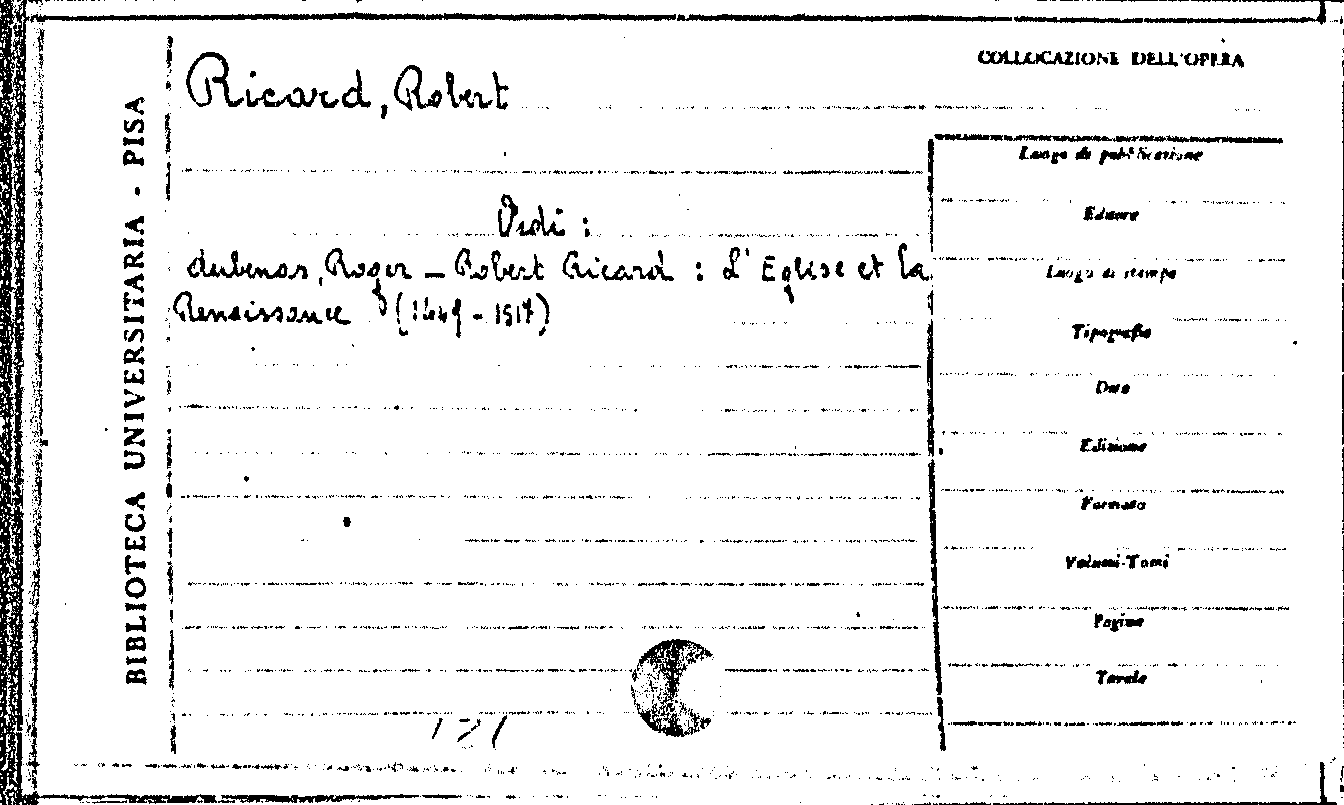 BIBLIOTECA UNIVERSITARIA - PISA
Ricard, Robert
COLLOCAZIONE DELL'OPERA
Vedi :
Aubenas, Roger - Robert Ricard : L'Eglise et la
Renaissance (1449 - 1517)
Luogo di pubblicazione
Editore
Luogo di stampa
Tipografia
Data
Edizione
Formato
Volumi-Tomi
Pagine
Tavole
121